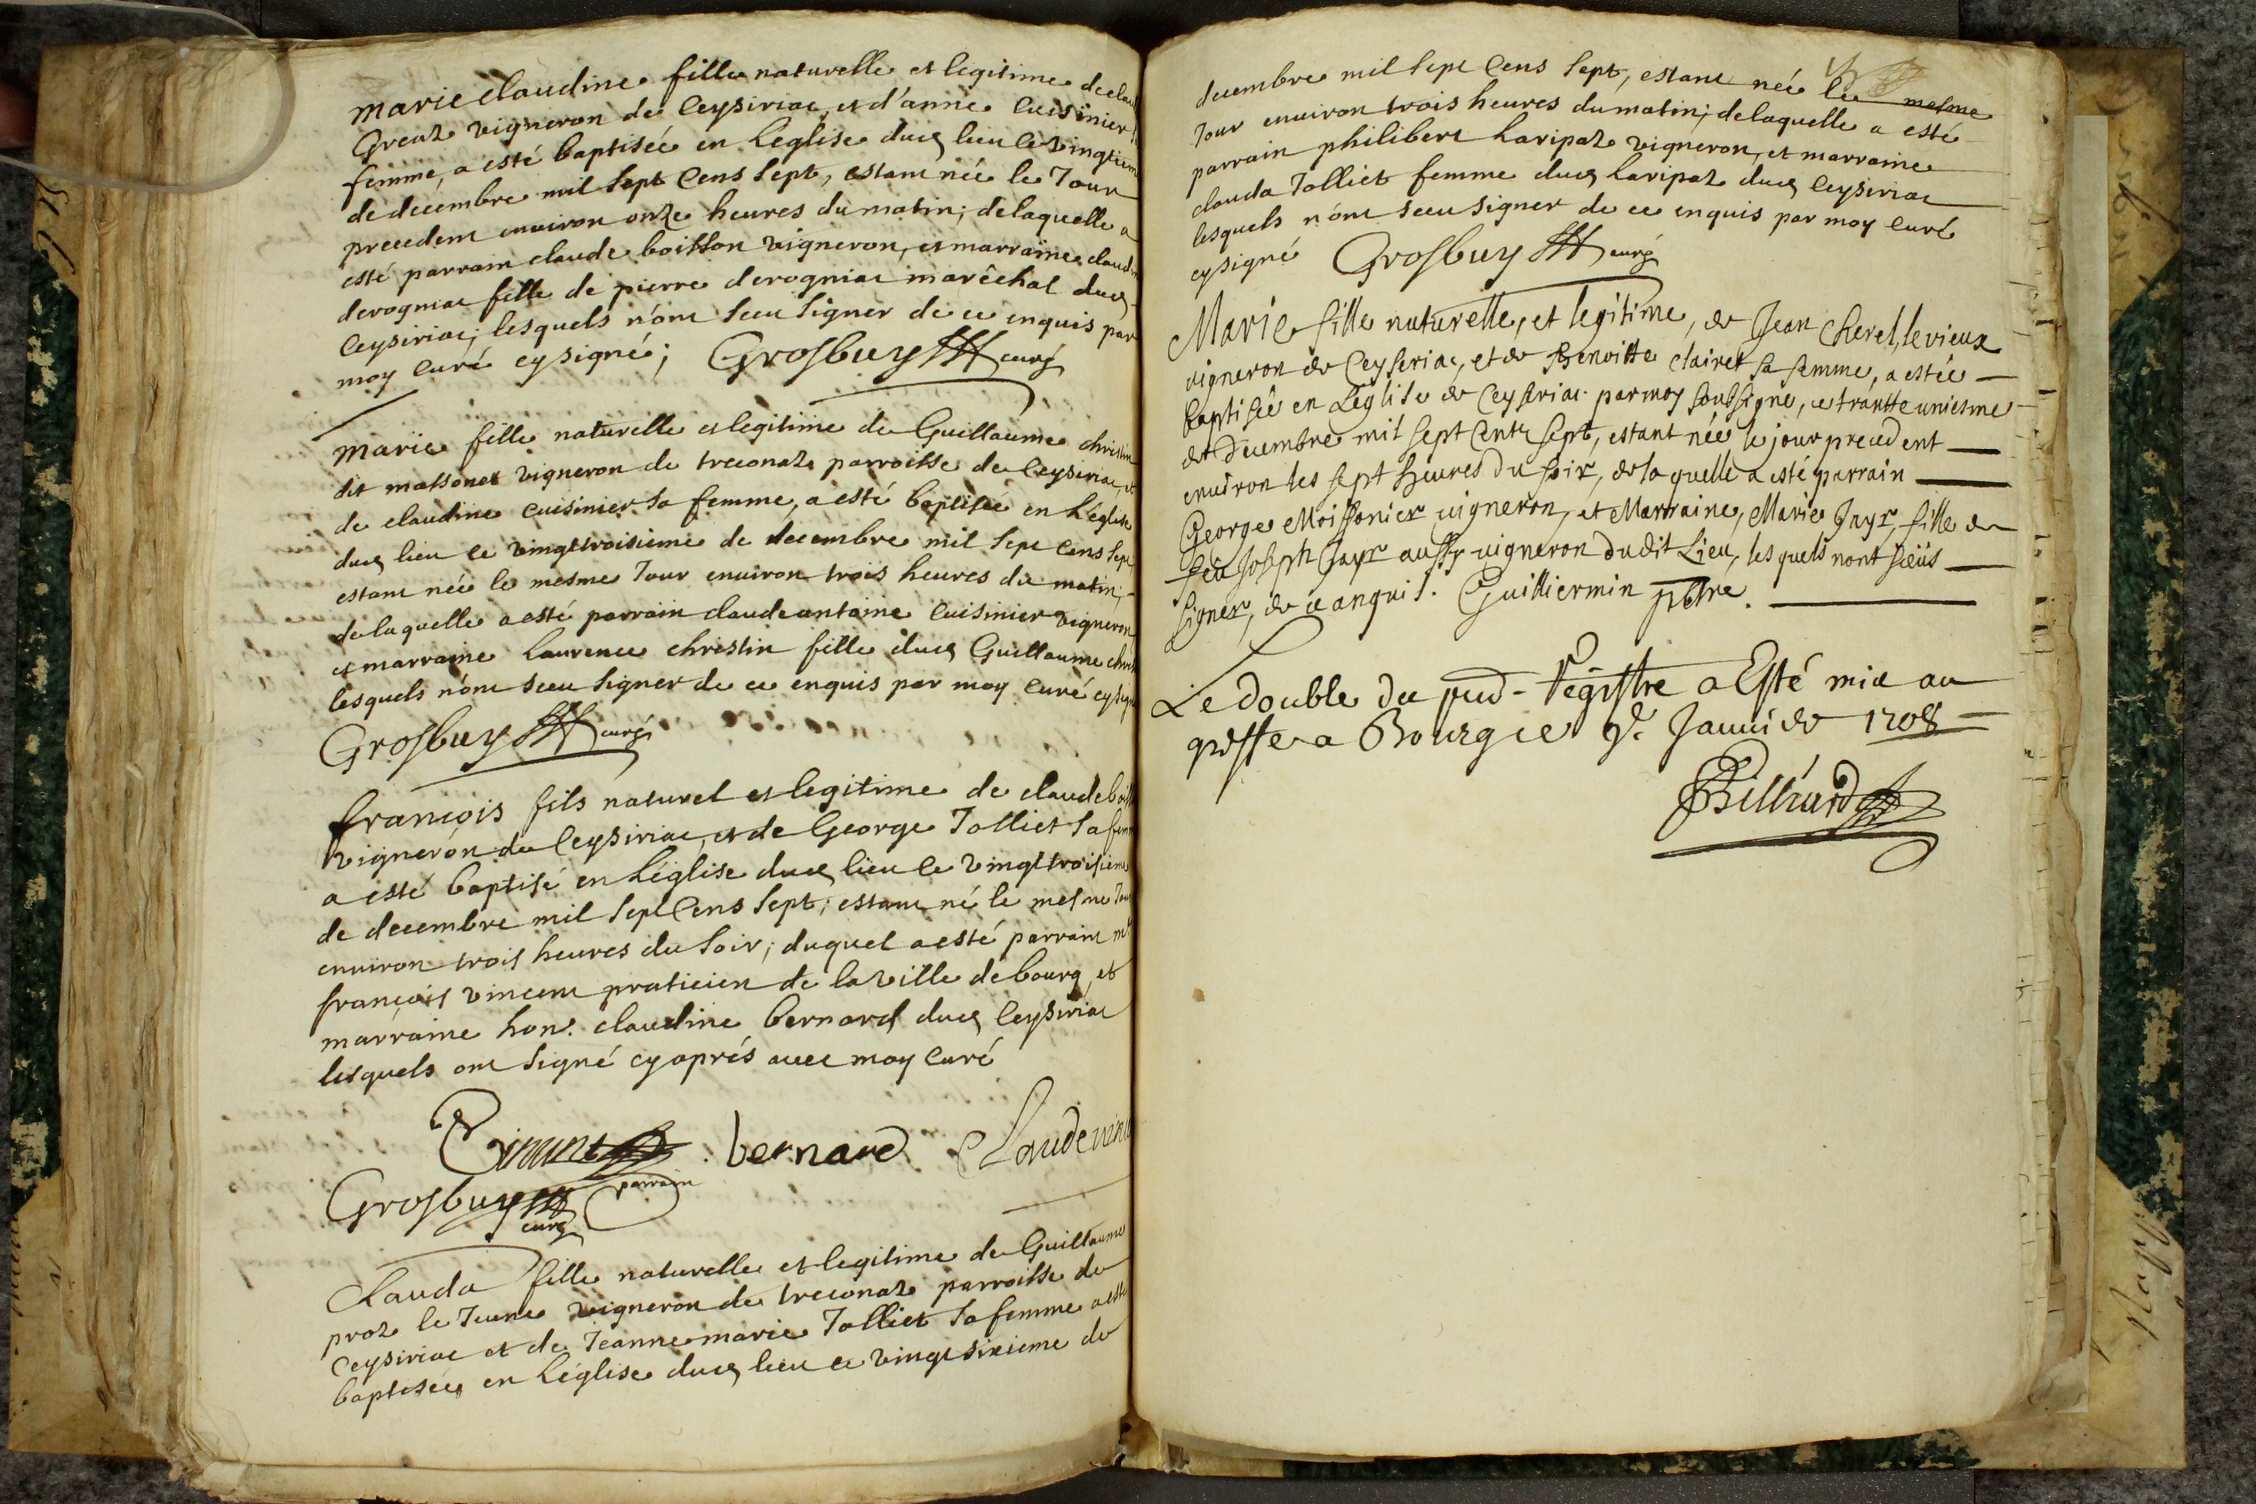 marie claudine fille naturelle et legitime de clau
Greaz vigneron de Ceysiriac, et d'anne Cuisinier
femme, a esté baptisée en l'eglise dud lieu le vingtiem
de decembre mil sept Cens sept, estant née le Jour
precedent environ onze heures du matin; de laquelle a
esté parrain claude boisson vigneron, et marraine claud
derogniac fille de pierre derogniac maréchal dud
Ceysiriac; lesquels n'ont sceu signer de ce enquis par
moy curé cy signé; Grosbuy curé
marie fille naturelle et legitime de Guillaume christin
dit massonet vigneron de treconaz parroisse de Ceysiriac, et
de claudine cuisinier sa femme, a esté baptisée en l'eglise
dud lieu le vingttroisieme de decembre mil sept Cens sept
estant née le mesme Jour environ trois heures du matin;
de laquelle a esté parrain claude antoine Cuisinier vigneron
et marraine laurence christin fille dud Guillaume chris
lesquels n'ont sceu signer de ce enquis par moy curé cy sig
Grosbuy curé
françois fils naturel et legitime de claude bois
vigneron de Ceysiriac, et de George Jolliet sa fem
a esté baptisé en l'église dud lieu le vingttroisieme
de decembre mil sept Cens sept; estant né le mesme Jour
environ trois heures du soir; duquel a esté parrain mr
françois vincent praticien de la ville de bourg, et
marraine hon. claudine bernard dud Ceysiriac
lesquels ont signé cy aprés avec moy Curé
bernard Claude
Grosbuy parrain
curé
Clauda fille naturelle et legitime de Guillaume
proz le Jeune vigneron de treconaz parroisse de
Ceysiriac et de Jeanne marie Jolliet sa femme a esté
baptisée en l'église dud lieu ce vingt sixieme de
decembre mil sept Cens sept, estant née le mesme
Jour environ trois heures du matin; de laquelle a esté
parrain philibert laripaz vigneron, et marraine
clauda Jolliet femme dud laripaz dud Ceysiriac
lesquels n'ont sceu signer de ce enquis par moy Curé
cy signé Grosbuy curé
Marie fille naturelle, et legitime, de Jean Cherel, le vieux
vigneron de Ceyseriac, et de Benoitte Clairet sa femme, a estée
baptisée en L'eglise de Ceyseriac par moy soubsigné, ce trantte uniesme
de Decembre mil sept Cents sept, estant née le jour precedent
environ les sept heures du soir, de la quelle a esté parrain
George Moissonier vigneron, et Marraine, Marie Jayr, fille de
feu Joseph Jayr aussy vigneron dudit Lieu, les quels n'ont sceüs
signer, de ce anquis. Guilliermin pbtre.
Le double du pnd registre a Esté mis au
greffe a Bourg ce 9e. Janui de 1708
Billiard